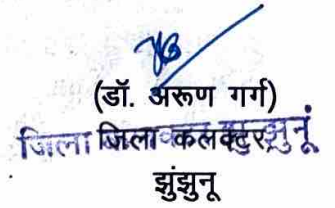 (डॉ. अरूण गर्ग)
जिला जिला कलक्टर झुंझुनूं
झुंझुनू